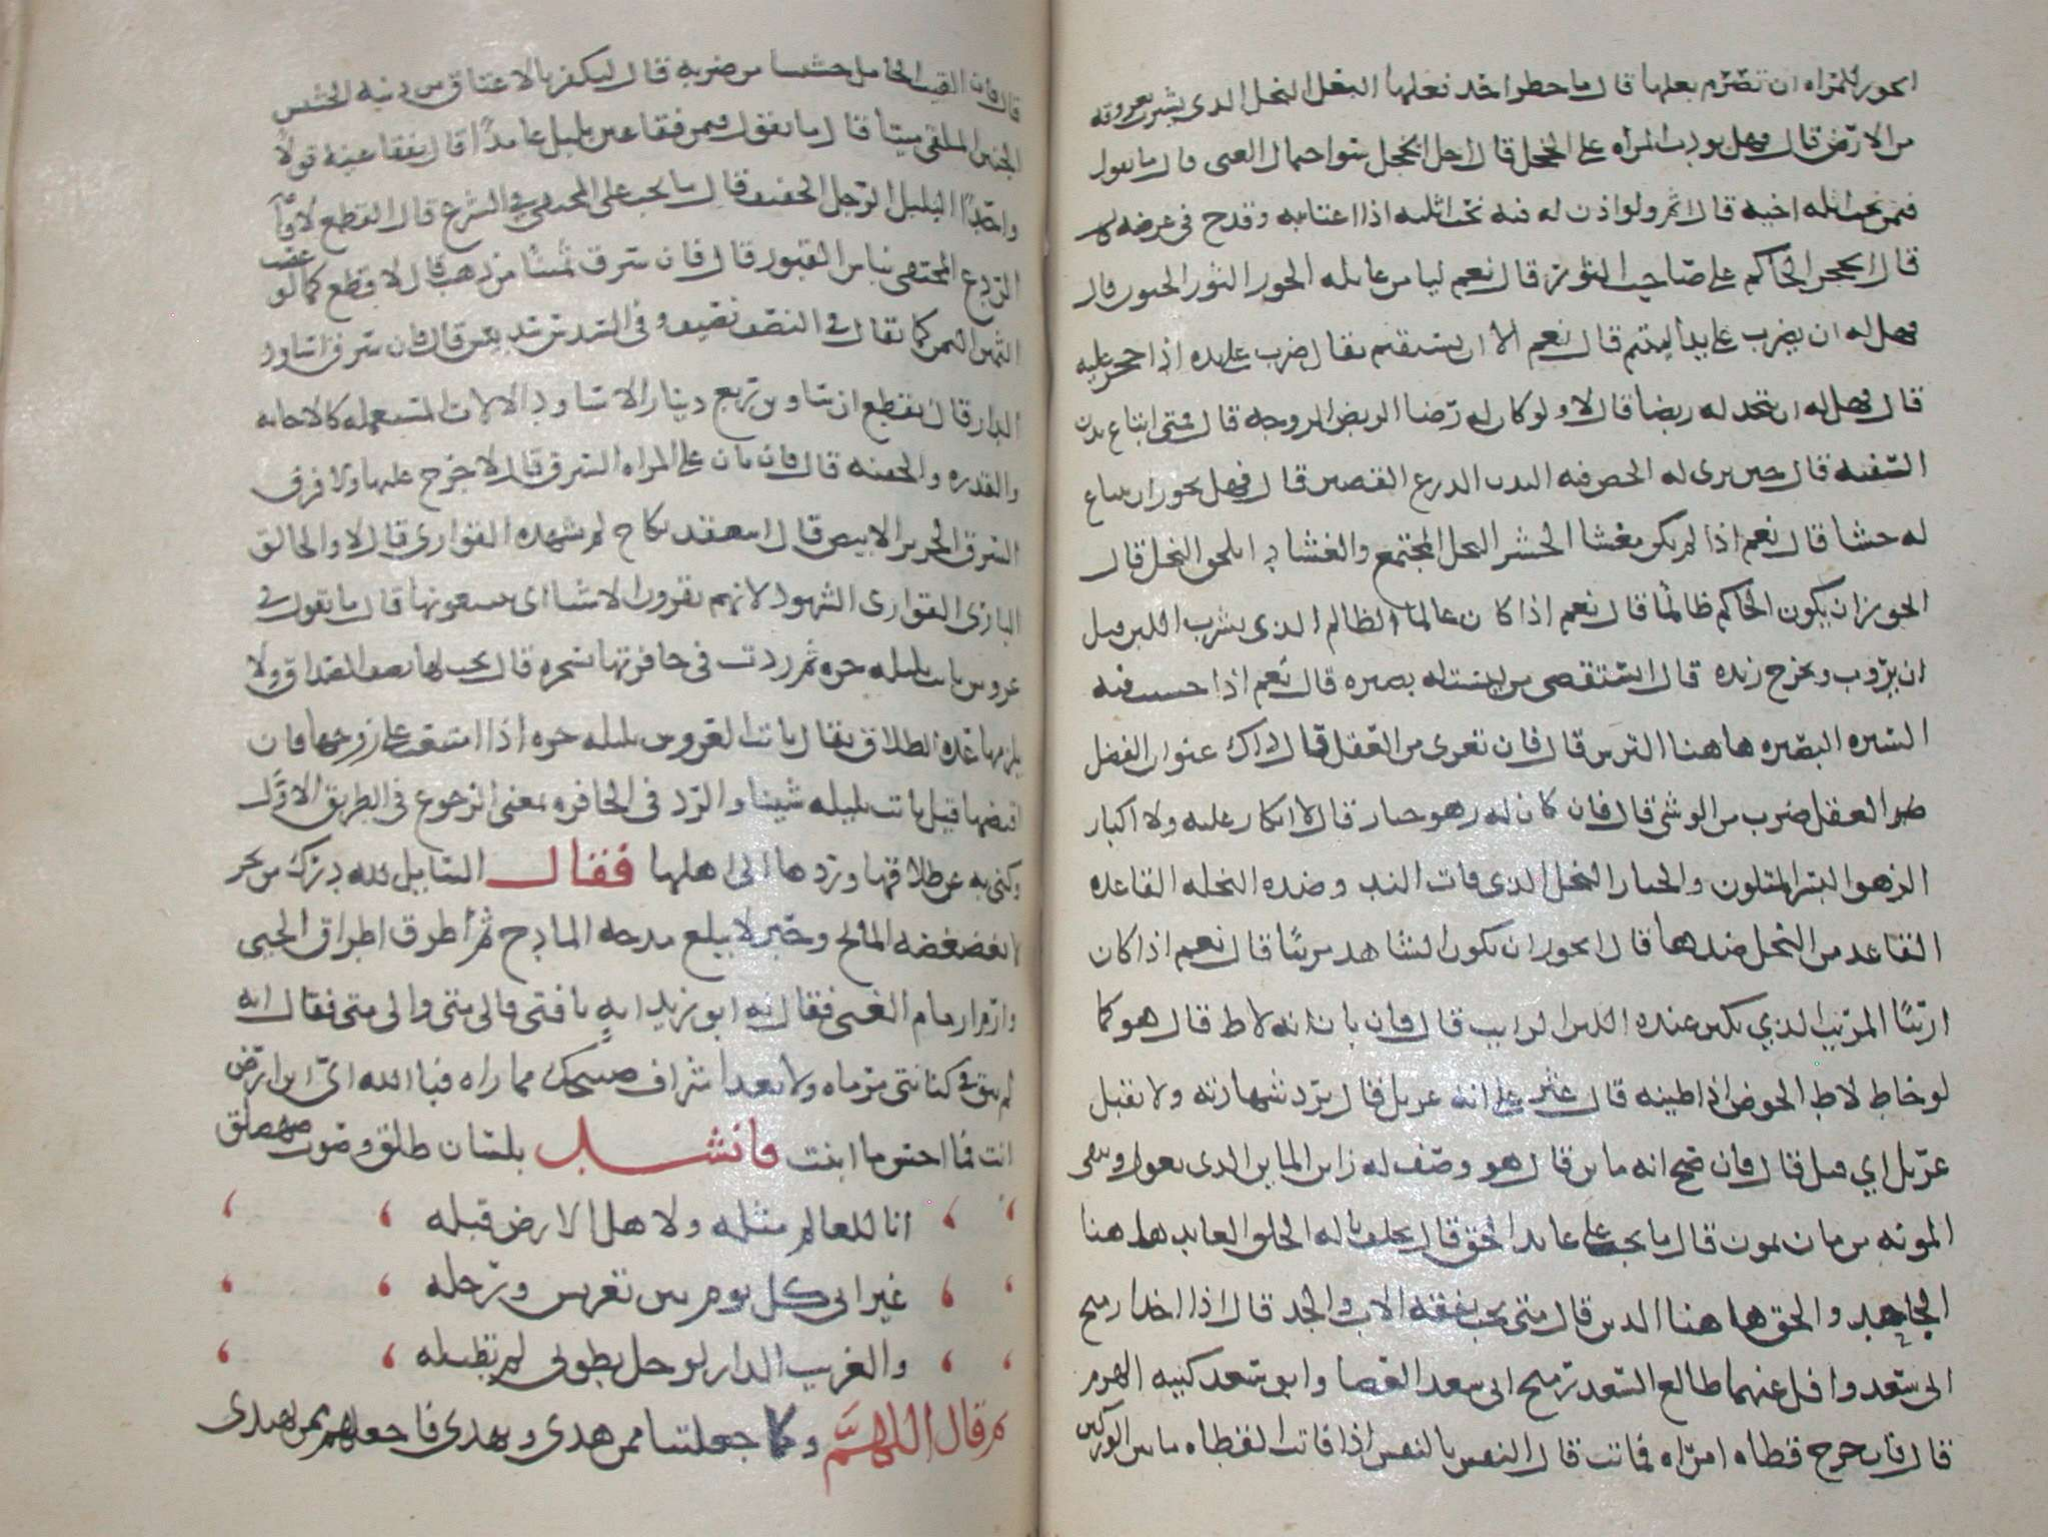 ايجوز للمراه ان تصرم بعلها قال ما حظر احد فعلها البعل النخل الذى يشرب بعروقه
من الارض قال فهل يودب المراه على الخجل قال اجل الخجل سوا احتمال الغنى قال ما يقول
فيمن نحت اثله اخيه قال اثم ولو اذن له فيه نحت اثلته اذا اغتابه وقدح فى عرضه
قال ايحجر الحاكم على صاحب الثور قال نعم ليامن غايله الجور الثور الجنون قال
فهل له ان يضرب على يد اليتيم قال نعم الا ان يستقيم يقال ضرب على يده اذا حجر عليه
قال فهل له ان يتخذ له ربضا قال لا ولو كان له رضا الربض الزوجه قال فمتى ابتاع بدن
السفيه قال حين يرى له الحظ فيه البدن الدرع القصير قال فهل يجوز ان يبتاع
له حشا قال نعم اذا لم يكن مغشا الحش النخل المجتمع والغشا
ايجوز ان يكون الحاكم ظالما قال نعم اذا كان عالما الظالم الذى يشرب اللبن قبل
ان يروب ويخرج زبده قال ايستقضى من ليست له بصيره قال نعم اذا حسنت فيه
السيره البصيره هاهنا الترس قال فان تعرى من العقل قال ذاك عنوان الفضل
العقل ضرب من الوشى قال فان كان له زهو جبار قال لا انكار عليه ولا اكبار
الزهو البسر المتلون والجبار النخل الذى فات اليد وضده النخله القاعده
القاعد من النخل ضدها قال ايجوز ان يكون الشاهد مريبا قال نعم اذا كان
اريبا المريب الذي يكثر عنده اللبن الرايب قال فان بان انه لاط قال هو كما
لو خاط لاط الحوض اذا طينه قال عثر على انه غربل قال ترد شهادته ولا تقبل
غربل اي قتل قال فان صح انه ماين قال هو وصف له زاين الماين الذى يعول ويكفى
المونه من مان يمون قال ما يجب على عابد الحق قال يحلف باله الخلق العابد ها هنا
الجاحد والحق هاهنا الدين قال متى يجب نفقه الاب والجد قال اذا اخذا رميح
ابى سعد وافل عنهما طالع السعد رميح ابى سعد العصا وابو سعد كنيه الهرم
قال فان جرح قطاه امراه فماتت قال النفس بالنفس اذا فاتت القطاه ما بين الوركين
قال فان القت الحامل حشيشا من ضربه قال ليكفر بالاعتاق من ذنبه الحشيش
الجنين الملقى ميتا قال ما يقول فيمن فقا عين بلبل عامدا قال يفقا عينه قولا
واحدا البلبل الرجل الخفيف قال ما يجب على المختفى في الشرع قال القطع لاقامة
الردع المختفى نباش القبور قال فان سرق ثمينا من ذهب قال لا قطع كما لو غصب
الثمين الثمن كما يقال في النصف نصيف وفى السدس سديس قال فان سرق اساود
الدار قال يقطع ان ساوين ربع دينار الاساود الالات المستعمله كالاجانه
والقدره والجفنه قال فان بان على المراه السرق قال لا حرج عليها ولا فرق
السرق الحرير الابيض قال اينعقد نكاح لم يشهده القوارى قال لا والخالق
البارى القوارى الشهود لانهم يقرون الاشيا اى يتتبعونها قال ما يقول في
عروس باتت بليله حره ثم ردت فى حافرتها بسحره قال يجب لها نصف الصداق ولا
يلزمها عده الطلاق يقال باتت العروس بليله حره اذا امتنعت على زوجها فان
افتضها قيل باتت بليله شيبا والرد فى الحافره بمعنى الرجوع فى الطريق الاول
وكنى به عن طلاقها وردها الى اهلها فقال السايل لله درك من بحر
لا يغضغضه الماتح وحبر لا يبلغ مدحه المادح ثم اطرق اطراق الحيى
وارم ارمام العيى فقال له ابو زيد ايه يا فتى فالى متى والى متى فقال انه
لم يبق فى كنانتى مرماه ولا بعد اشراق صبحك مماراه فبالله اى ابن ارض
انت فما احسن ما ابنت فانشد بلسان طلق وصوت صهصلق
انا للعالم مثله ولاهل الارض قبله
غير انى كل يوم بين تعريس ورحله
والغريب الدار لو حل بطوبى لم تطب له
ثم قال اللهم وكما جعلتنا ممن هدى ويهدى فاجعلهم ممن يهتدى